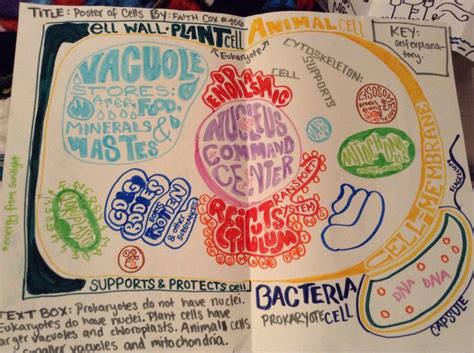 TITLE: Poster of Cells By: FAITH COX #406
CELL WALL • PLANT cell
ANIMAL CELL
KEY:
self explanatory.
Eukaryote
VACUOLE
STORES:
WATER, FOOD,
MINERALS &
WASTES
ENDOPLASMIC
CELL
CYTOSKELETON:
SUPPORTS
NUCLEUS
COMMAND
CENTER
GOLGI
BODIES
PROTIEN
& other
substances
TRANSPORT
SYSTEM
CELL-MEMBRANE
energy from sunlight
SUPPORTS & PROTECTS cell
BACTERIA
PROKARYOTE CELL
DNA DNA
CAPSULE
TEXT BOX: Prokaryotes do not have nuclei.
Eukaryotes do have nuclei. Plant cells have
larger vacuoles and chloroplasts. Animal cells
smaller vacuoles and mitochondria.